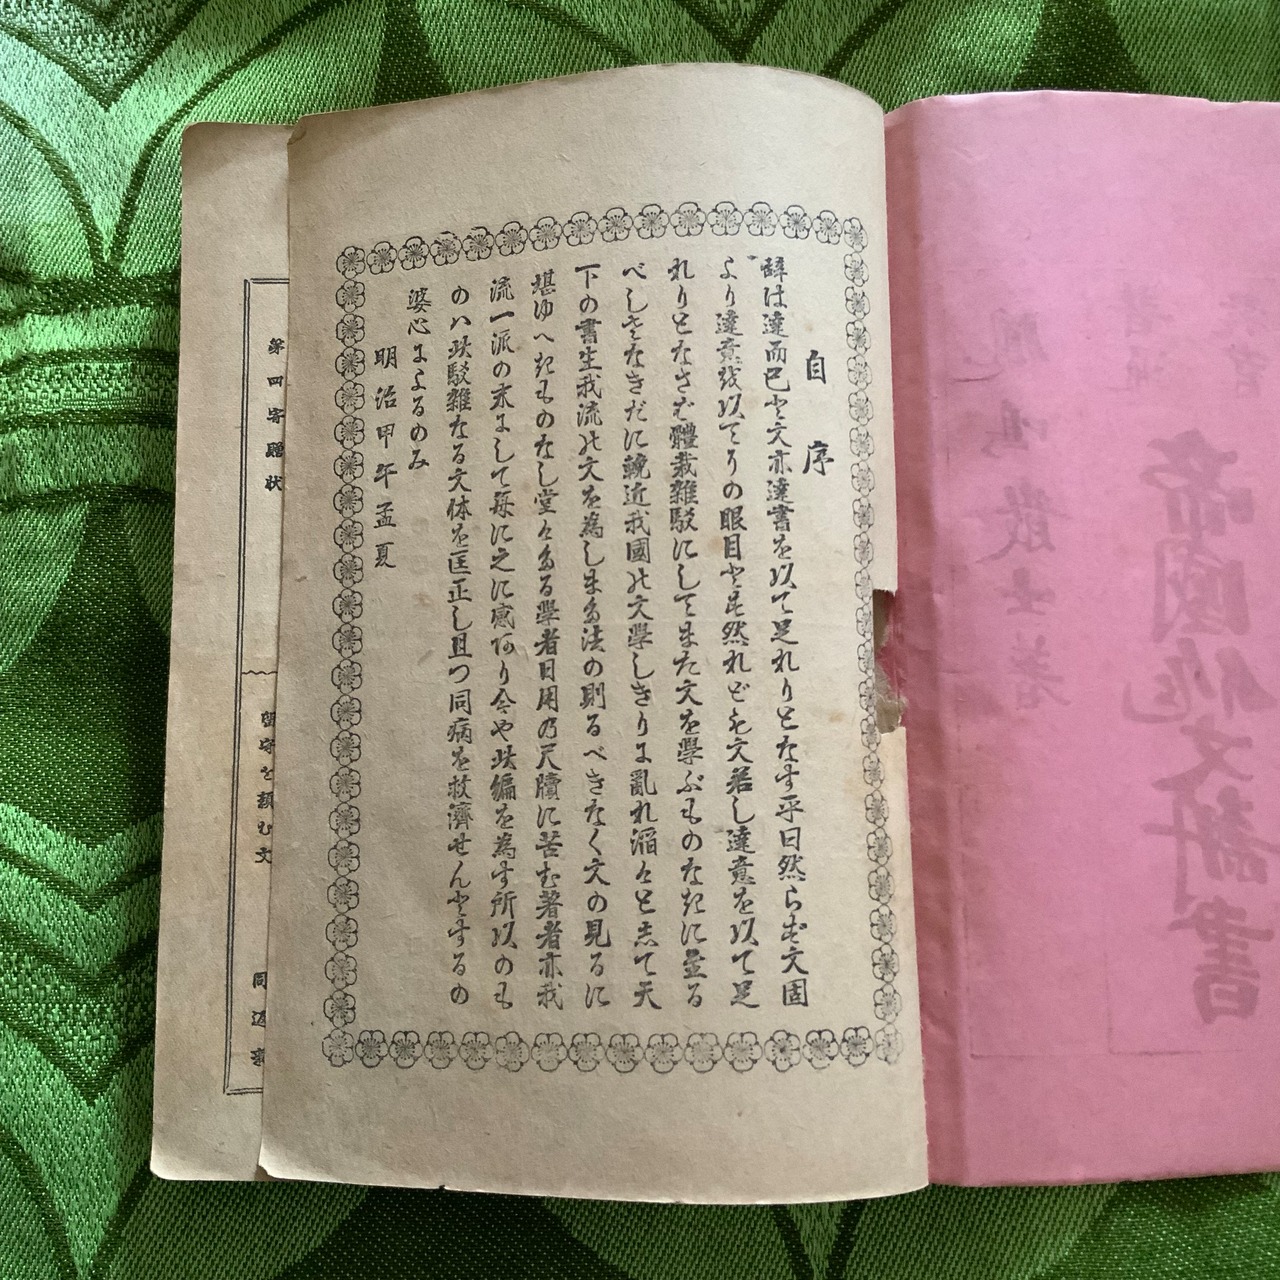 自序
辭は達而已と文亦達書を以て足れりとなす乎曰然らず文固
より達意を以てその眼目とす然れども文若し達意を以て足
れりとなさむ體裁雜駁にしてまた文を學ぶものなきに至る
べしさなきだに輓近我國の文學しきりに亂れ滔々として天
下の書生我流の文を為しまた法の則るべきなく文の見るに
堪ゆへきものなし堂々たる學者日用の尺牘に苦む著者亦我
流一派の末にして每に之に感あり今や此編を為す所以のも
のハ此駁雜なる文体を匡正し且つ同病を救濟せんとするの
婆心によるのみ
明治甲午孟夏
寄贈状
留守を頼む文
同返事
帝國作文新書